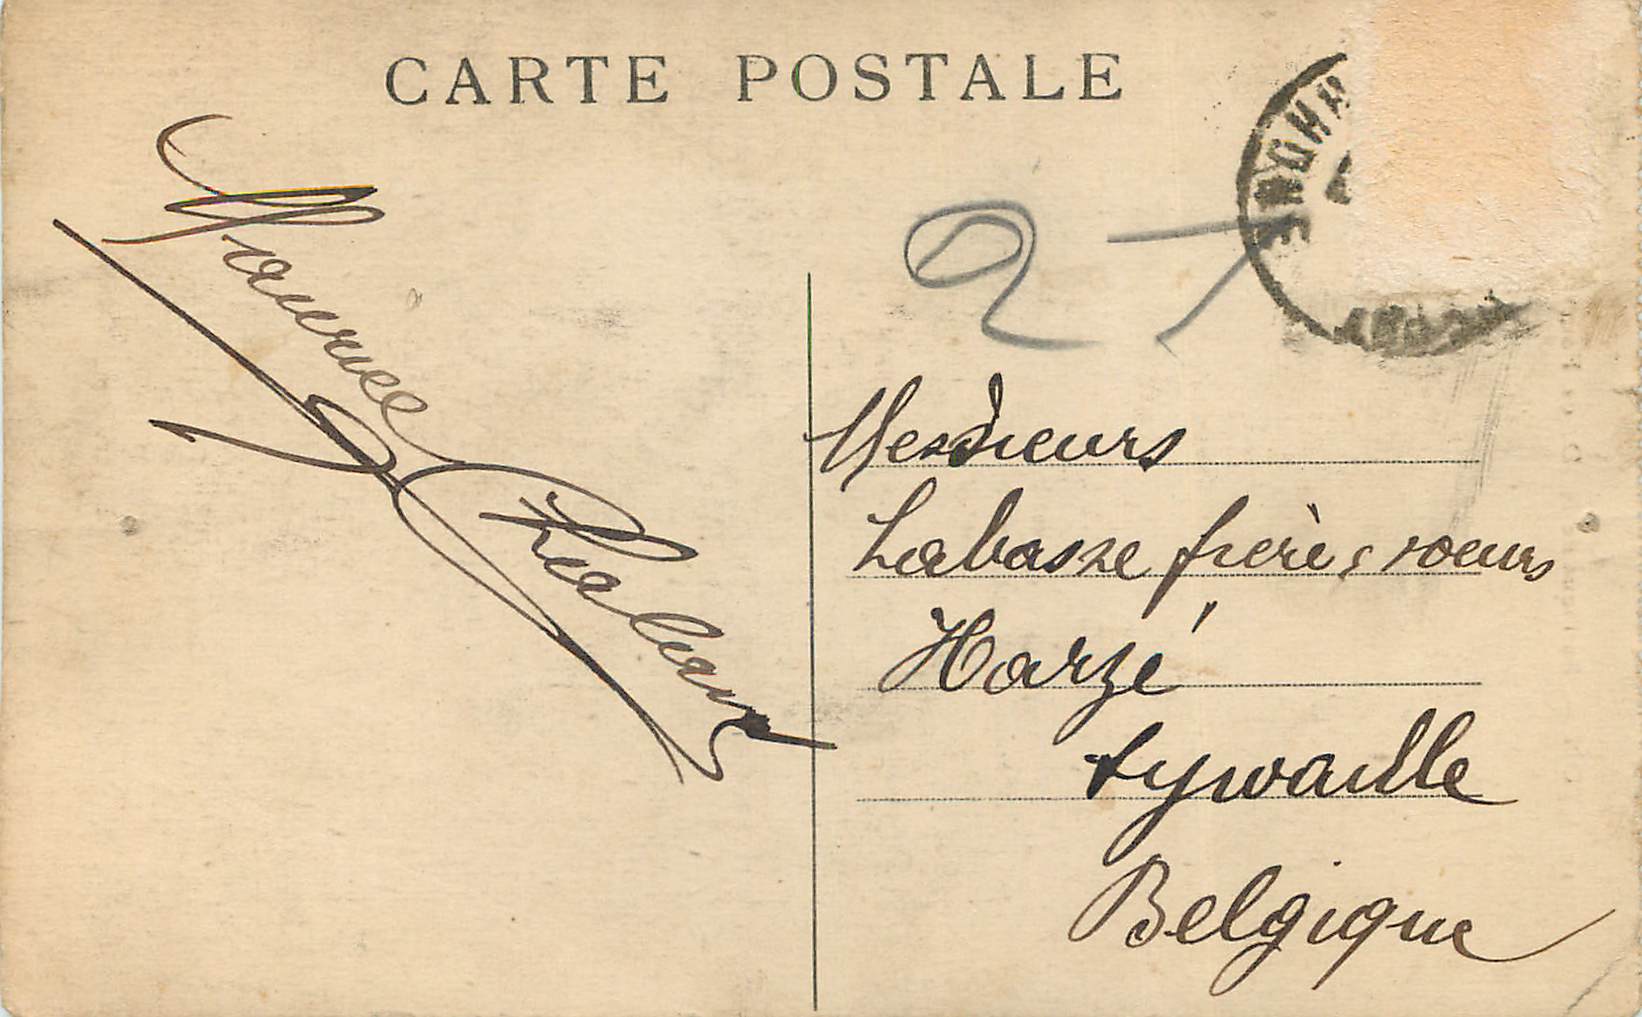 CARTE POSTALE
Maurice
Messieurs
Labasse frère, soeurs
Harzé
Aywaille
Belgique